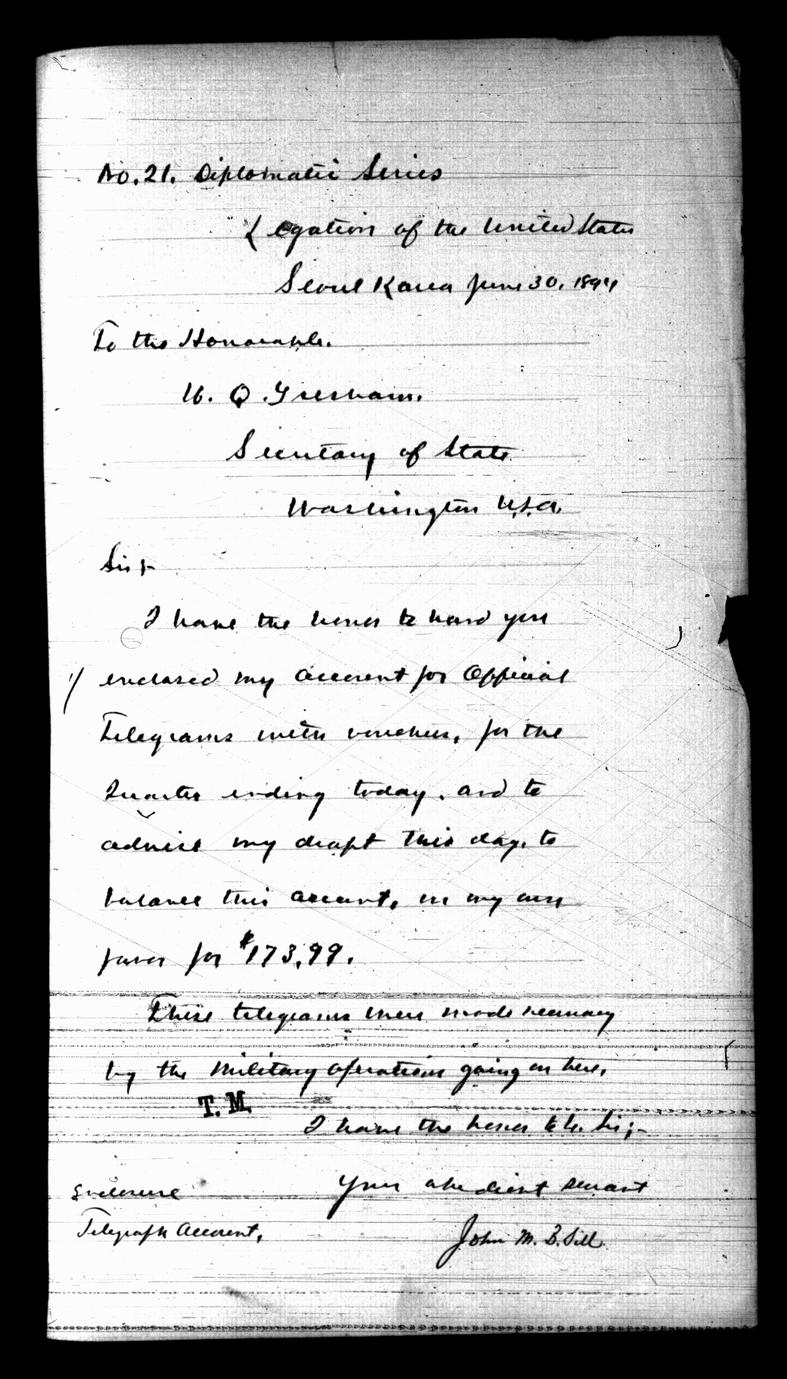 No. 21. Diplomatic Series
Legation of the United States
Seoul Korea June 30, 1894
To the Honorable.
W. Q. Gresham.
Secretary of State
Washington U.S.A.
Sir;-
I have the honor to hand you
enclosed my account for Official
Telegrams with vouchers, for the
Quarter ending today, and to
advise my draft this day, to
balance this account, in my own
favor for $173.99.
These telegrams were made necessary
by the military operations going on here.
T. M.
I have the honor to be Sir;-
Your obedient servant
Enclosure
Telegraph Account,
John M. B. Sill